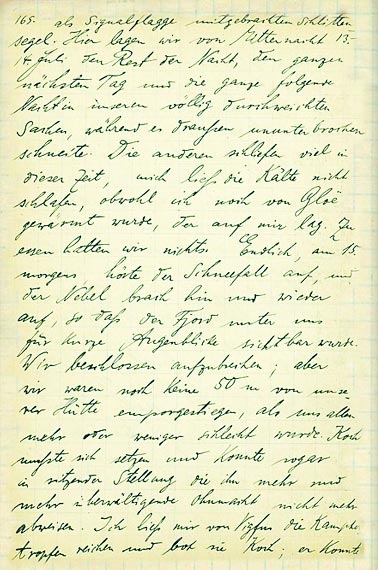 165. als Signalflagge mitgebrachten Schlitten
segel. Hier lagen wir von Mitternacht 13.-
14. Juli den Rest der Nacht, den ganzen
nächsten Tag und die ganze folgende
Nacht in unseren völlig durchweichten
Sachen, während es draußen ununterbrochen
schneite. Die anderen schliefen viel in
dieser Zeit, mich ließ die Kälte nicht
schlafen, obwohl ich noch von Glöe
gewärmt wurde, der auf mir lag. Zu
essen hatten wir nichts. Endlich, am 15.
morgens, hörte der Schneefall auf, und
der Nebel brach hin und wieder
auf, so daß der Fjord unter uns
für kurze Augenblicke sichtbar wurde.
Wir beschlossen aufzubrechen; aber
wir waren noch keine 50 m von unse-
rer Hütte emporgestiegen, als uns allen
mehr oder weniger schlecht wurde. Koch
mußte sich setzen und konnte sogar
in sitzender Stellung die ihn mehr und
mehr überwältigende Ohnmacht nicht mehr
abweisen. Ich ließ mir von Vigfus die Kampfer
tropfen reichen und bot sie Koch; er konnte